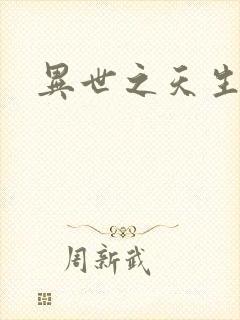 異世之天生
周新武